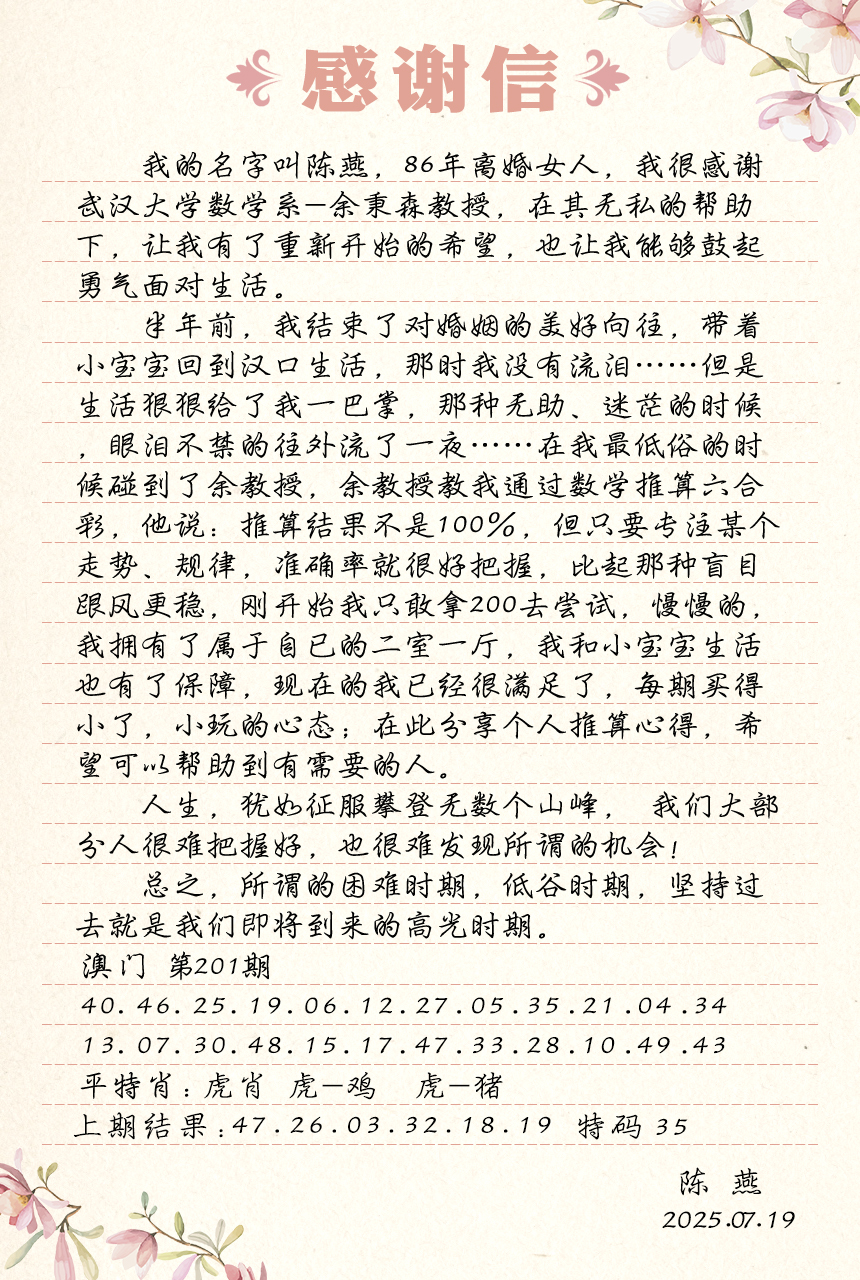 感谢信
我的名字叫陈燕，86年离婚女人，我很感谢
武汉大学数学系—余秉森教授，在其无私的帮助
下，让我有了重新开始的希望，也让我能够鼓起
勇气面对生活。
半年前，我结束了对婚姻的美好向往，带着
小宝宝回到汉口生活，那时我没有流泪……但是
生活狠狠给了我一巴掌，那种无助、迷茫的时候
，眼泪不禁的往外流了一夜……在我最低俗的时
候碰到了余教授，余教授教我通过数学推算六合
彩，他说：推算结果不是100%，但只要专注某个
走势、规律，准确率就很好把握，比起那种盲目
跟风更稳，刚开始我只敢拿200去尝试，慢慢的，
我拥有了属于自已的二室一厅，我和小宝宝生活
也有了保障，现在的我已经很满足了，每期买得
小了，小玩的心态；在此分享个人推算心得，希
望可以帮助到有需要的人。
人生，犹如征服攀登无数个山峰， 我们大部
分人很难把握好，也很难发现所谓的机会！
总之，所谓的困难时期，低谷时期，坚持过
去就是我们即将到来的高光时期。
澳门 第201期
40.46.25.19.06.12.27.05.35.21.04.34
13.07.30.48.15.17.47.33.28.10.49.43
平特肖：虎肖 虎—鸡 虎—猪
上期结果：47.26.03.32.18.19 特码 35
陈 燕
2025.07.19